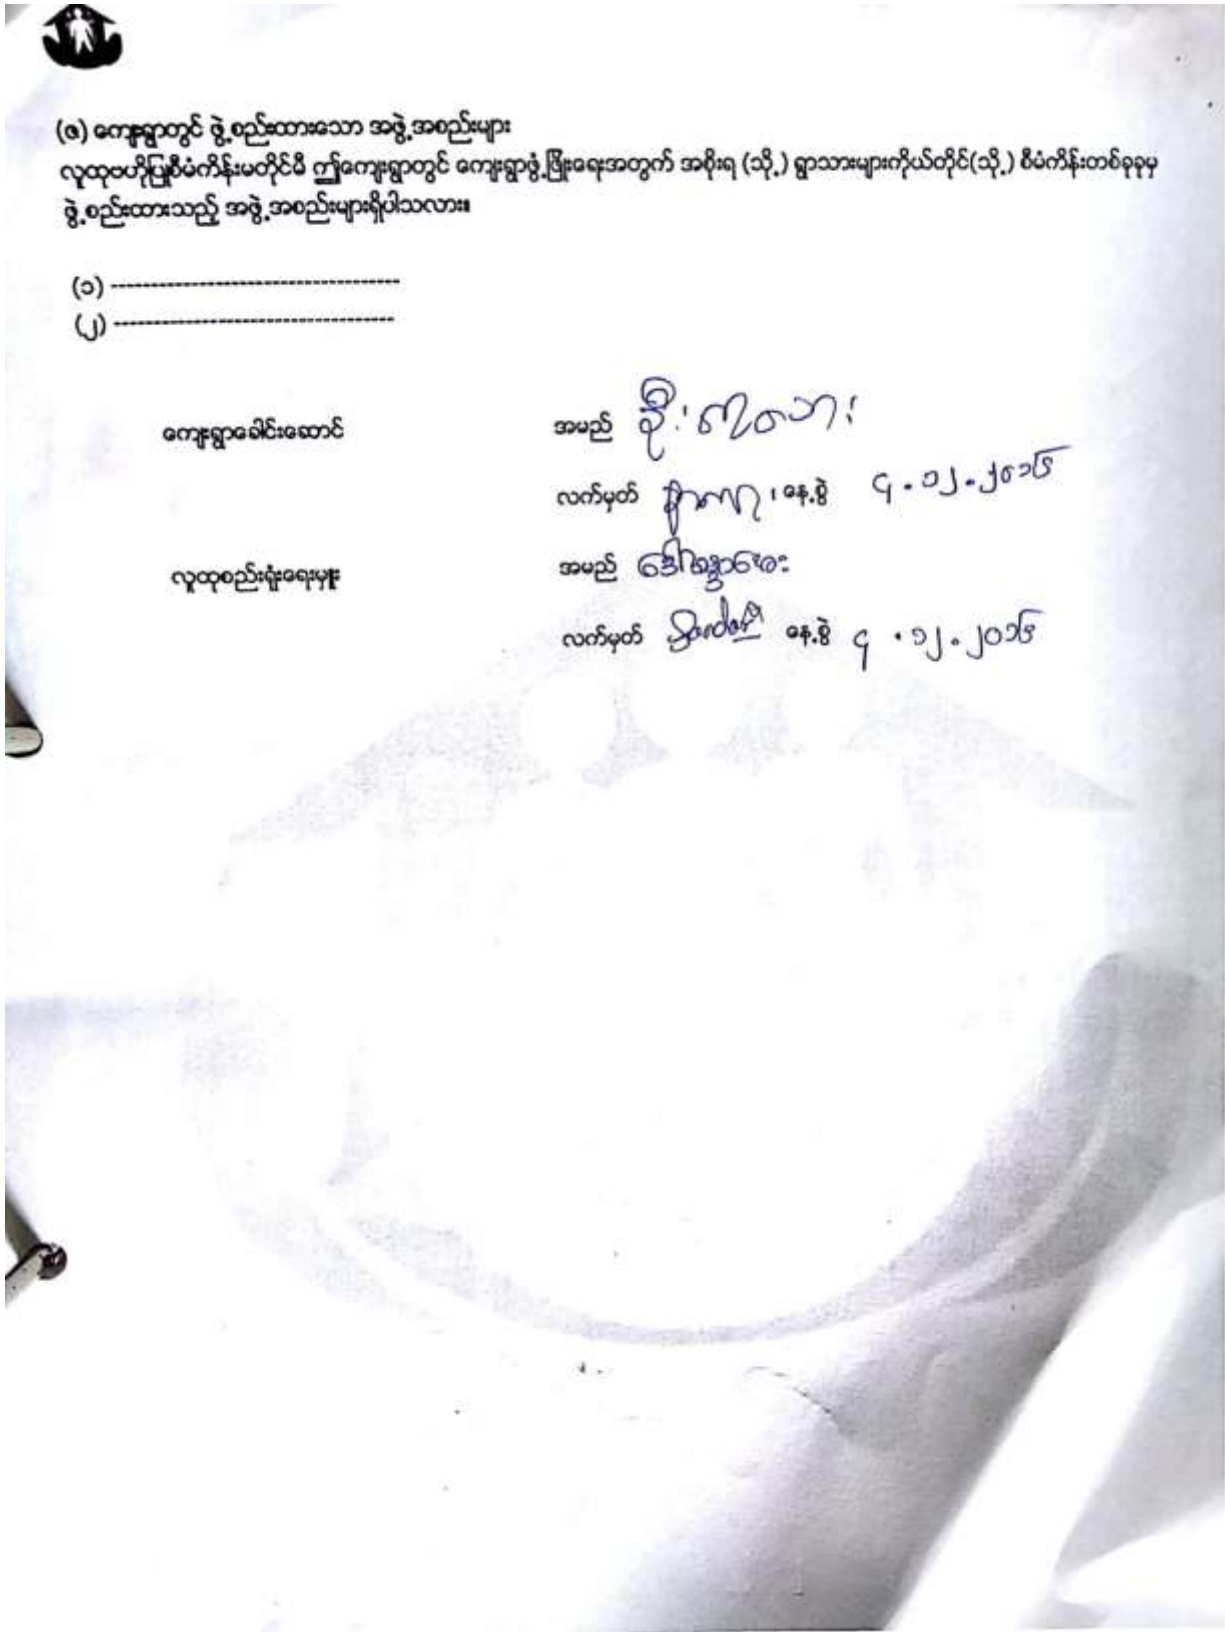 (ဇ) ကျေးရွာတွင် ဖွဲ့စည်းထားသော အဖွဲ့အစည်းများ
လူထုဗဟိုပြုစီမံကိန်းမတိုင်မီ ဤကျေးရွာတွင် ကျေးရွာဖွံ့ဖြိုးရေးအတွက် အစိုးရ (သို့) ရွာသားများကိုယ်တိုင်(သို့) စီမံကိန်းတစ်ခုခုမှ
ဖွဲ့စည်းထားသည့် အဖွဲ့အစည်းများရှိပါသလား။
(၁) ------------------------------------
(၂) ------------------------------------
ကျေးရွာခေါင်းဆောင် အမည်
လက်မှတ် နေ့စွဲ ၄.၁၂.၂၀၁၆
လူထုစည်းရုံးရေးမှူး အမည်
လက်မှတ် နေ့စွဲ ၄.၁၂.၂၀၁၆